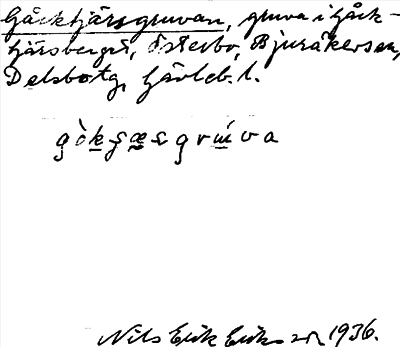 Gåcktjärsgruvan, gruva i Gåck-
tjärsberget, Österbo, Bjuråkers sn,
Delsbo tg, Gävleb. l.
Nils Erik Eriksson 1936.